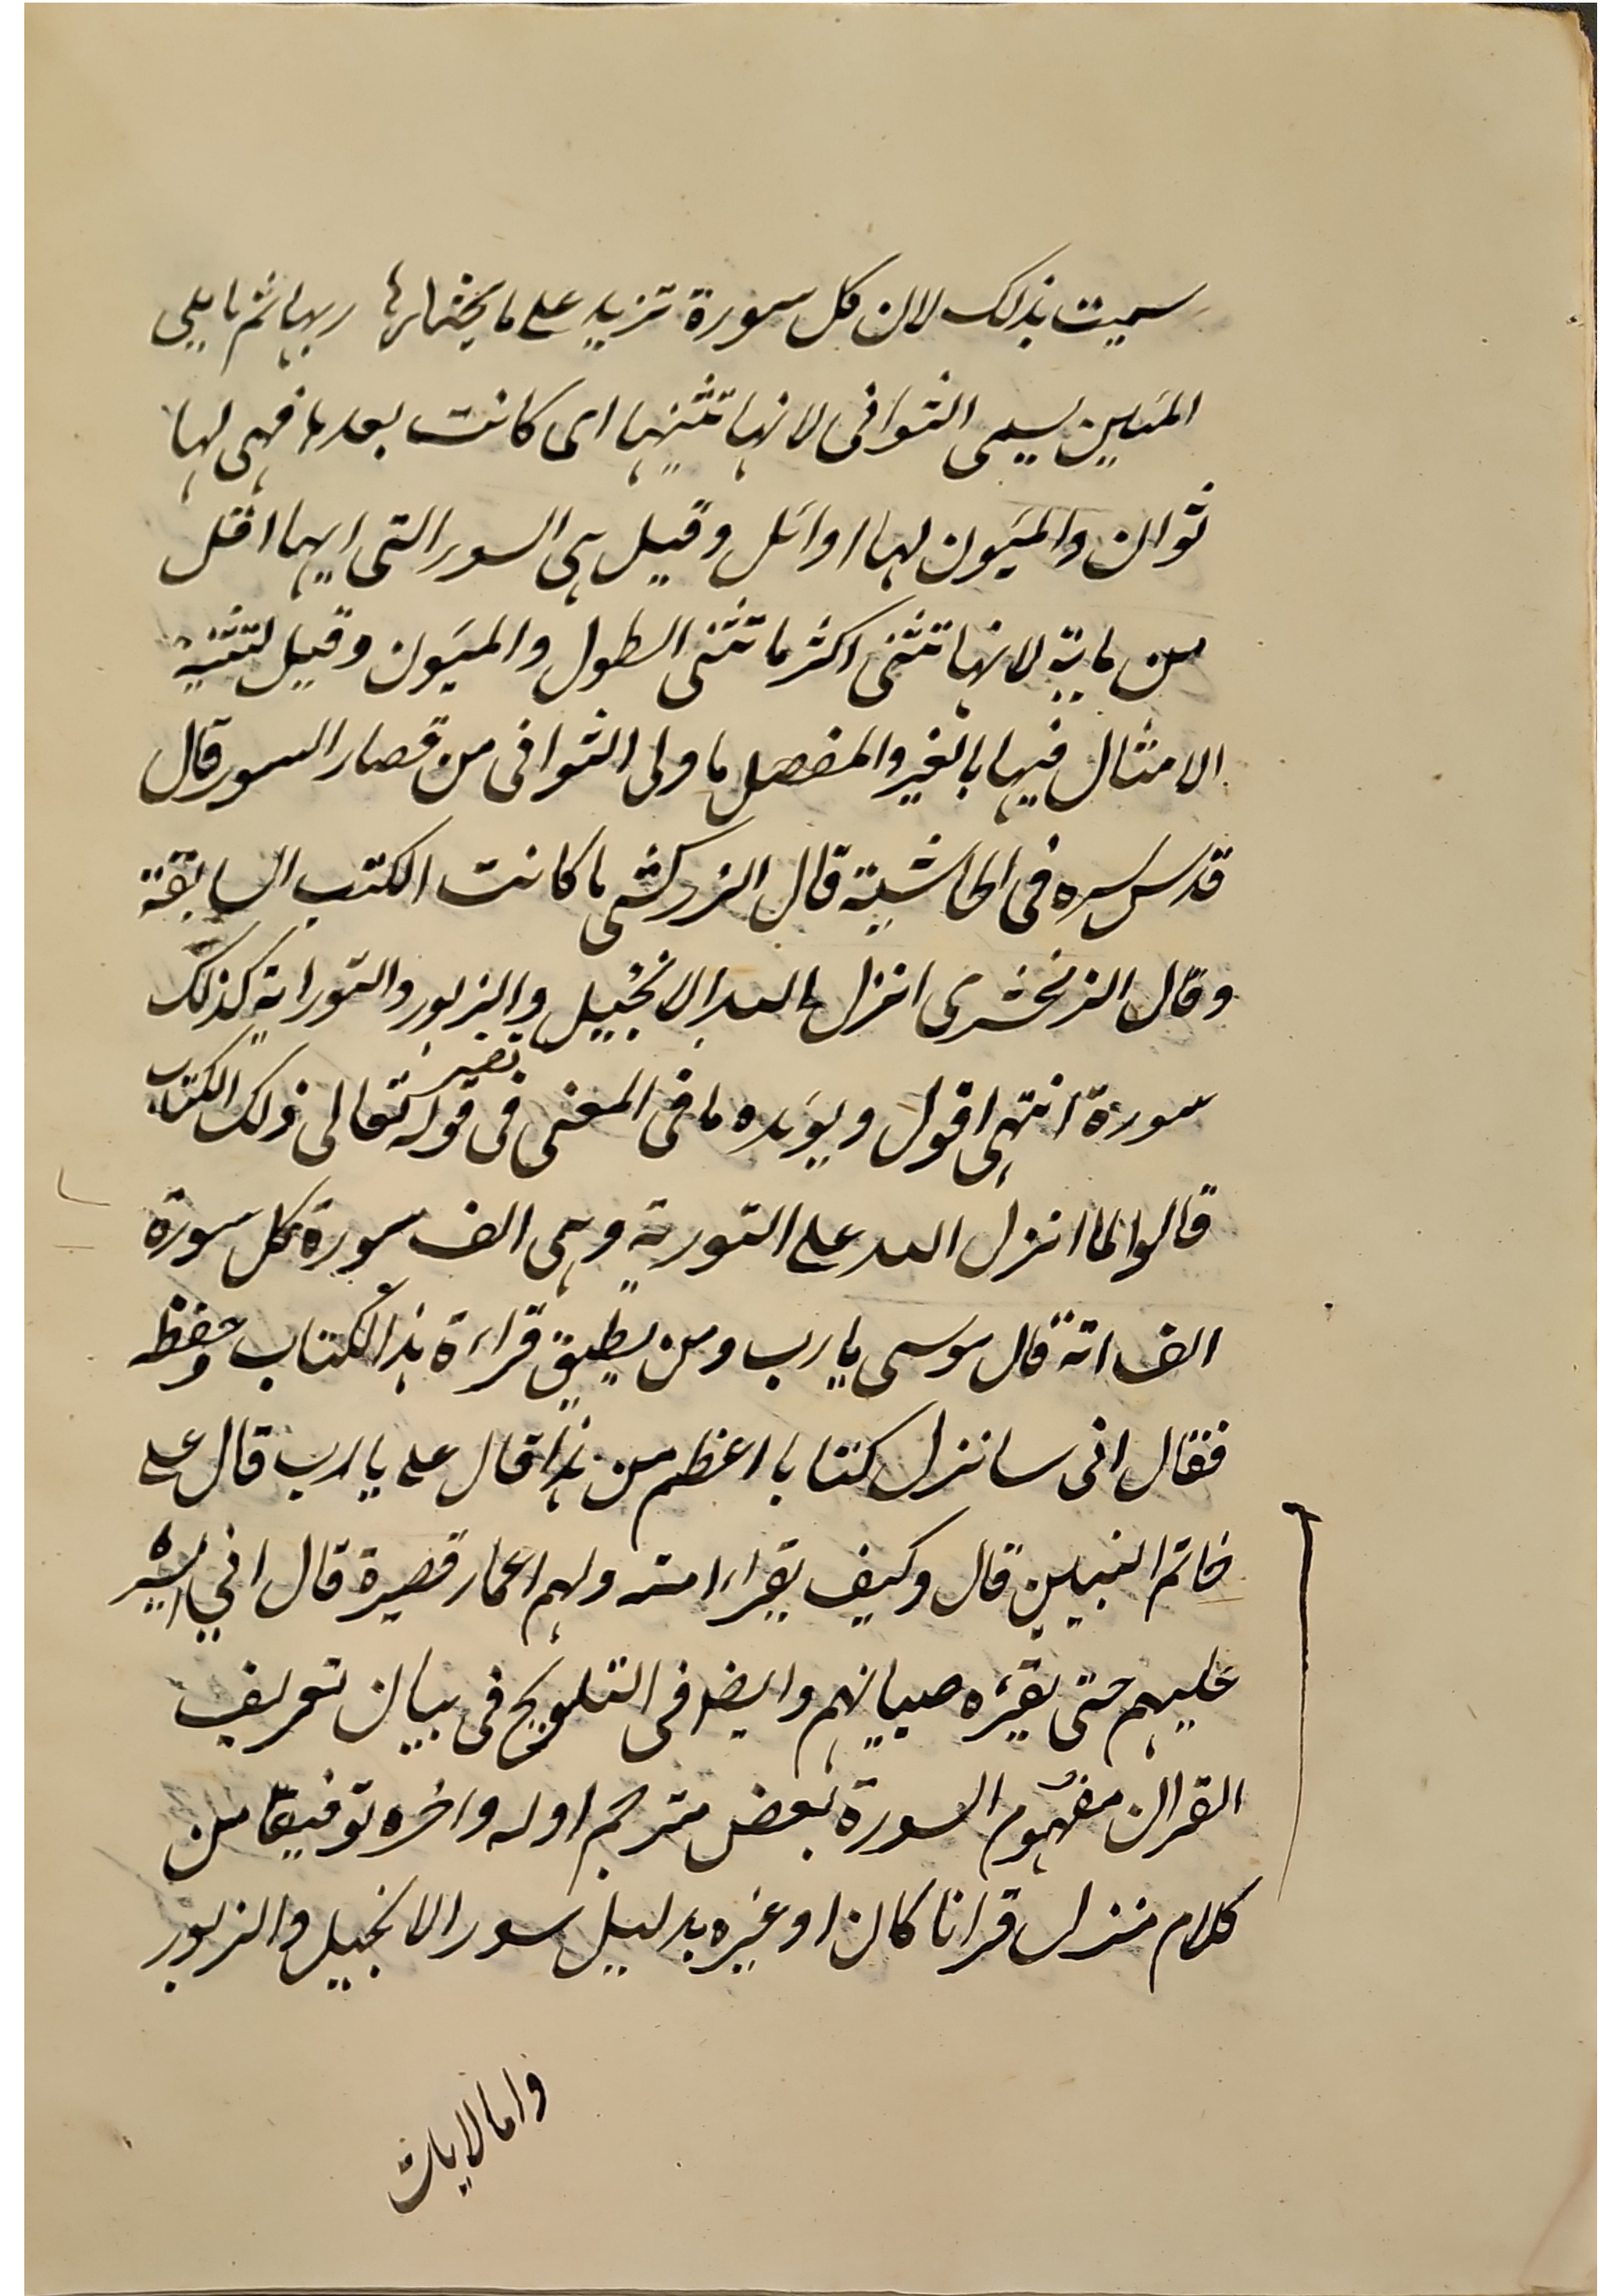 سميت بذلك لان كل سورة تزيد على ما ربها ثم ما يلى
المئين يسمى الثوانى لانها تثنيها اى كانت بعدها فهى لها
ثوان والميئون لها اوائل وقيل هى السور التى ايها اقل
من ماية لانها تثنى اكثر ما تثنى الطول والميئون وقيل لتثنية
الامثال فيها بالغير والمفصل ما ولى الثوانى من قصار السور قال
قدس سره فى الحاشية قال الزركشى ما كانت الكتب السابقة
وقال الزمخشرى انزل الله الانجيل والزبور والتوراية كذلك
سورة انتهى اقول ويؤيده ما فى المغنى فى تفسير قوله تعالى ذلك الكتاب
قالوا لما انزل الله على التورية وهى الف سورة كل سورة
الف اتة قال موسى يا رب ومن يطيق قراءة هذا الكتاب وحفظه
فقال انى سانزل كتابا اعظم من هذا قال على يا رب قال على
خاتم النبيين قال وكيف يقراء امته ولهم اعمار قصيرة قال اني ايسره
عليهم حتى يقرئه صبيانهم وايضا فى التلويح فى بيان تعريف
القران مفهوم السورة بعض مترجم اوله واخره توفيقا من
كلام منزل قرانا كان او غيره بدليل سور الانجيل والزبور
واما الايات